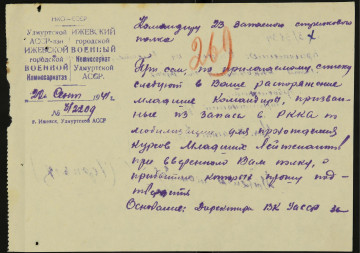 НКО—СССР
Удмуртской ИЖЕВСКИЙ
АССР городской
ИЖЕВСКИЙ ВОЕННЫЙ
городской Комиссариат
ВОЕННЫЙ Удмуртской
Комиссариат АССР.
1941 г.
№ 3/2209
г. Ижевск, Удмуртской АССР
Командиру 23 запасного стрелкового
полка
269
При сем, по прилагаемому списку
следуют в Ваше распоряжение
младшие командиры, призван-
ные из запаса в РККА по
мобилизации для прохождения
курсов младших лейтенантов
при вверенном Вам полку, о
прибытии которых прошу под-
Основание: Директива ВК УАССР за